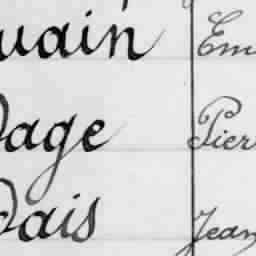 uain Em
Page Pier
Dais Jean